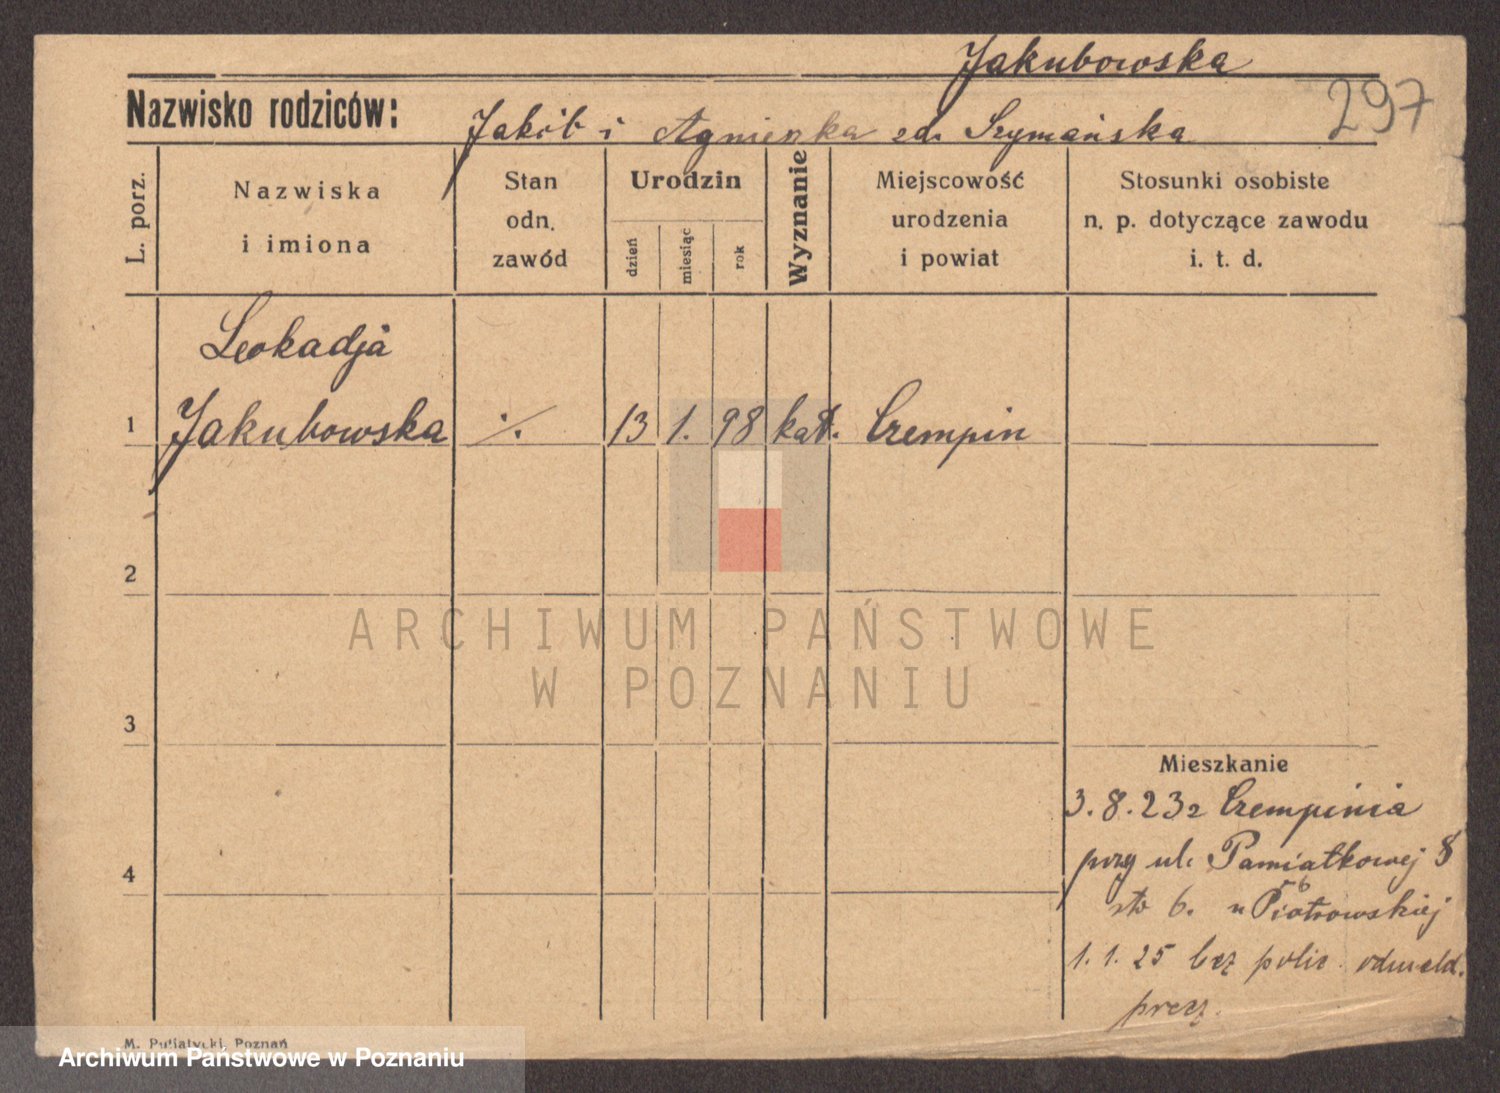 Jakubowska
297
Nazwisko rodziców:
Jakób i Agnieszka zd. Szymańska
L. porz.
Nazwiska
i imiona
Stan
odn.
zawód
Urodzin
dzień
miesiąc
rok
Wyznanie
Miejscowość
urodzenia
i powiat
Stosunki osobiste
n. p. dotyczące zawodu
i. t. d.
Leokadja
1 Jakubowska ·/. 13 1. 98 kat. Czempin
2
3
4
ARCHIWUM PAŃSTWOWE
W POZNANIU
Mieszkanie
3.8.23 z Czempinia
przy ul. Pamiatkowej 8
6. u Piotrowskiej
1.1.25 bez polic. odmeld.
precz.
M. Putiatycki, Poznań
Archiwum Państwowe w Poznaniu